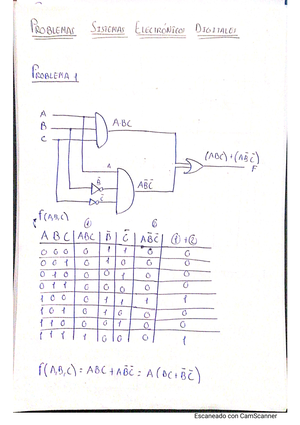 PROBLEMAS SISTEMAS ELECTRÓNICOS DIGITALES
PROBLEMA 1
A
B
C
ABC
(ABC) + (AB̄C̄)
F
B̄
C̄
AB̄C̄
f(A,B,C)
A B C ABC B̄ C̄ AB̄C̄ ①+②
0 0 0 0 1 1 0 0
0 0 1 0 1 0 0 0
0 1 0 0 0 1 0 0
0 1 1 0 0 0 0 0
1 0 0 0 1 1 1 1
1 0 1 0 1 0 0 0
1 1 0 0 0 1 0 0
1 1 1 1 0 0 0 1
f(A,B,C) = ABC + AB̄C̄ = A(BC + B̄C̄)
Escaneado con CamScanner